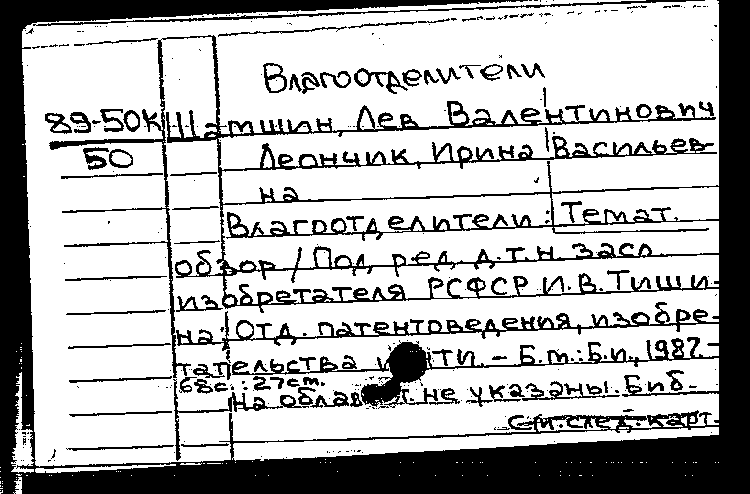 Влагоотделители
89-50К Шамшин, Лев Валентинович
50 Леончик, Ирина Васильев-
на
Влагоотделители: Темат.
обзор / Под ред. д.т.н. засл.
изобретателя РСФСР И.В. Тиши-
на; Отд. патентоведения, изобре-
тательства и НТИ. - Б.м.: Б.и., 1987. -
68с.: 27см.
На обл. авт. не указаны. Биб-
См. след. карт.